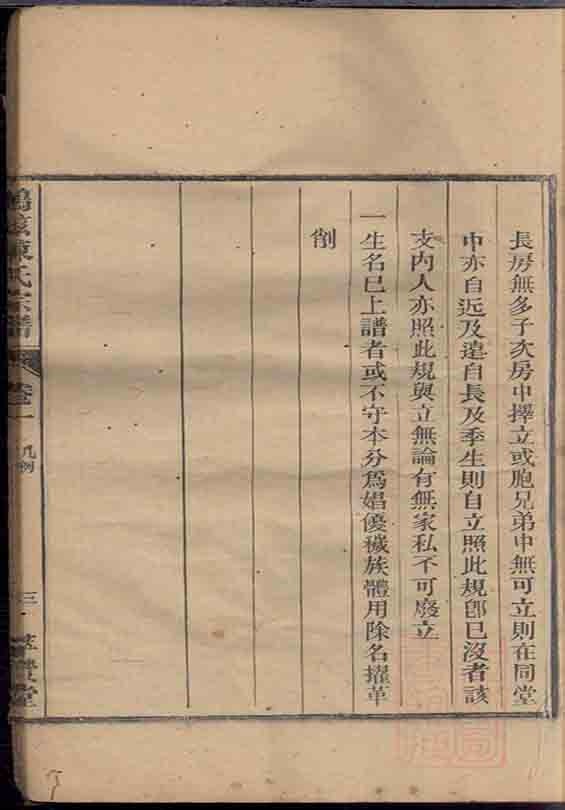 長房無多子次房中擇立或胞兄弟中無可立則在同堂
中亦自近及遠自長及季生則自立照此規卽已沒者該
支內人亦照此規與立無論有無家私不可廢立
一生名已上譜者或不守本分爲娼優穢族體用除名擢革
削
陳氏宗譜
卷一
凡例
三
堂